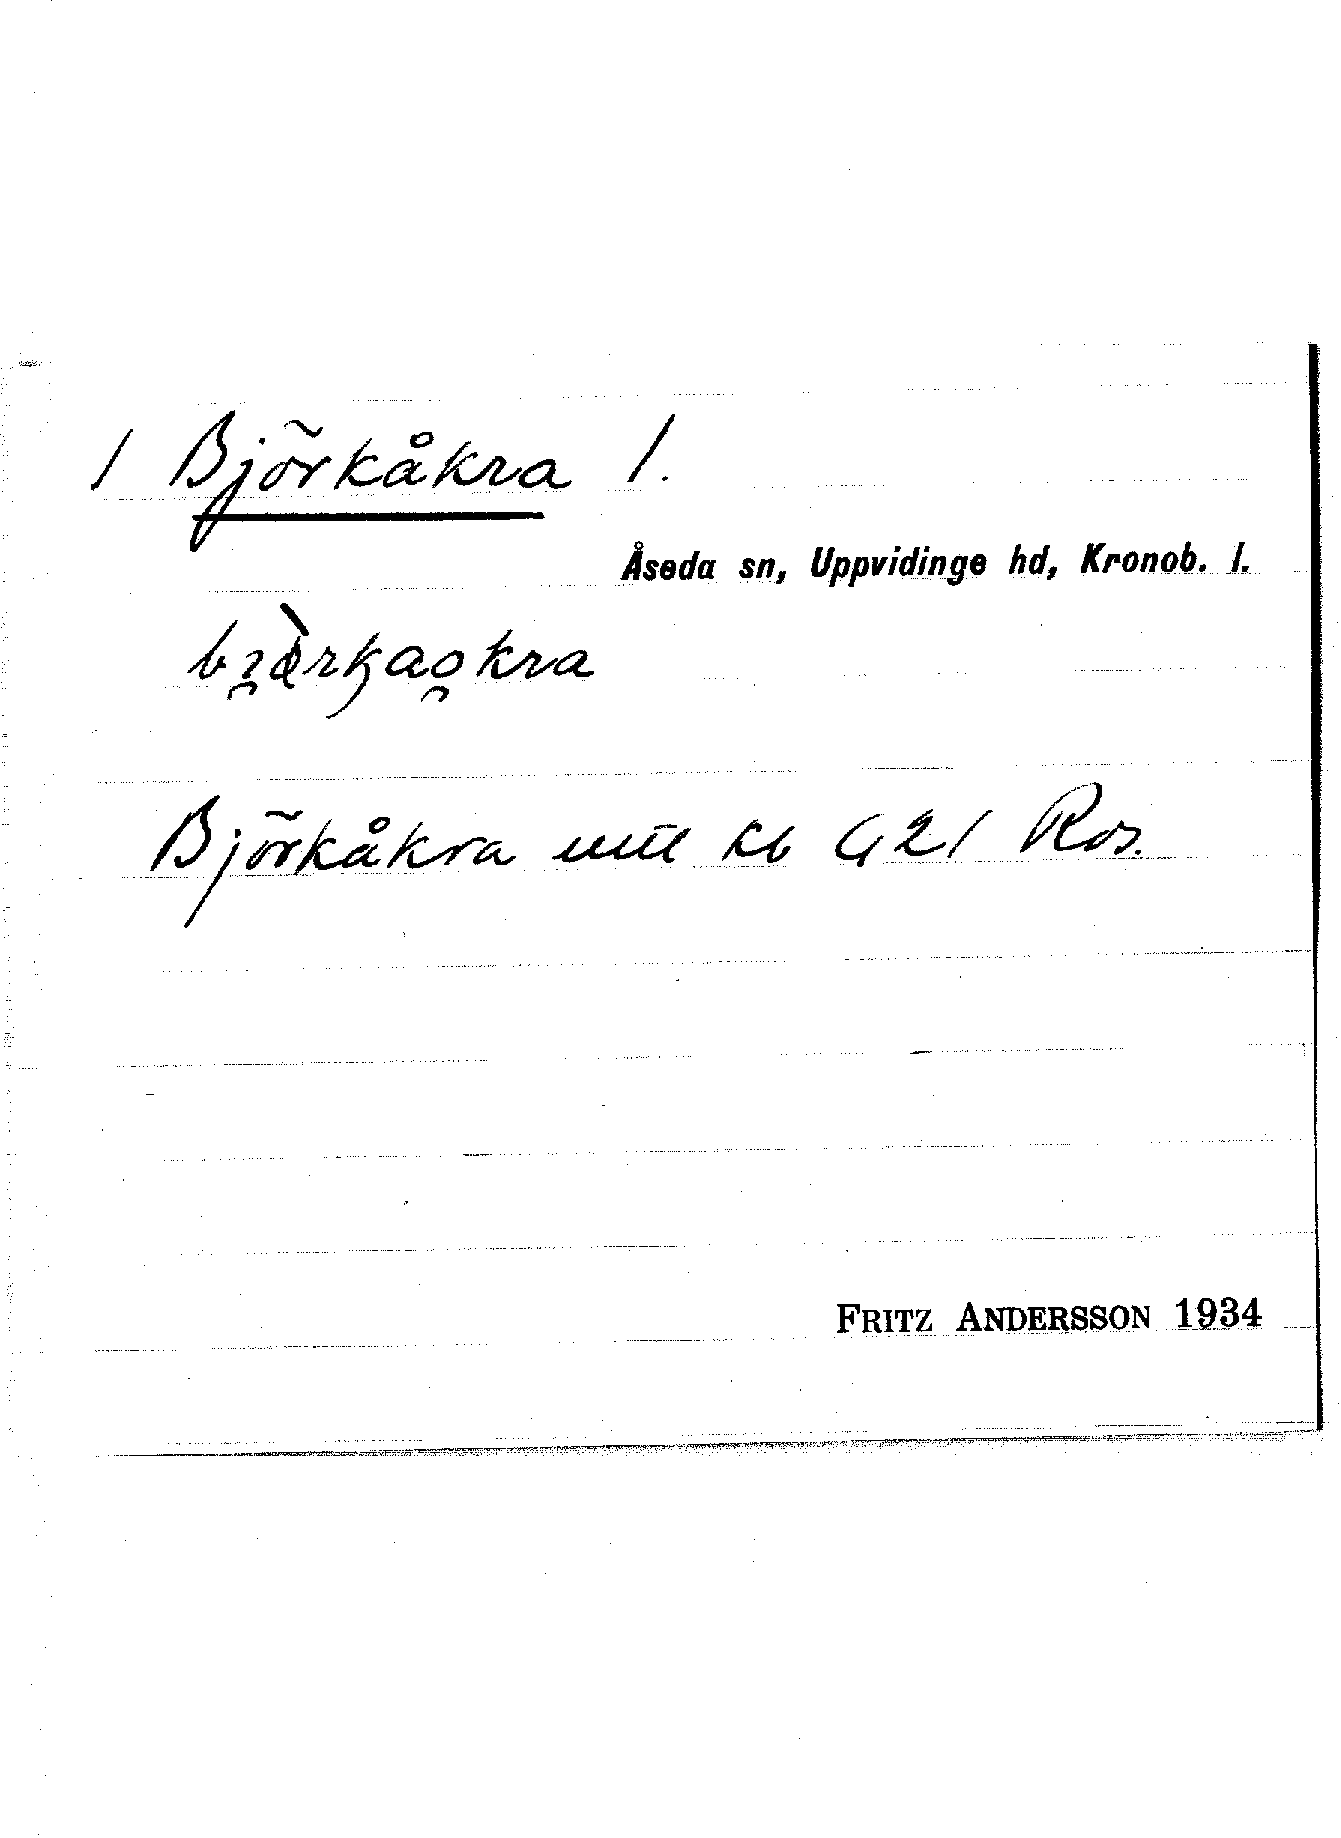 / Björkåkra /.
Åseda sn, Uppvidinge hd, Kronob. l.
Björkåkra kb G21 Ros.
FRITZ ANDERSSON 1934